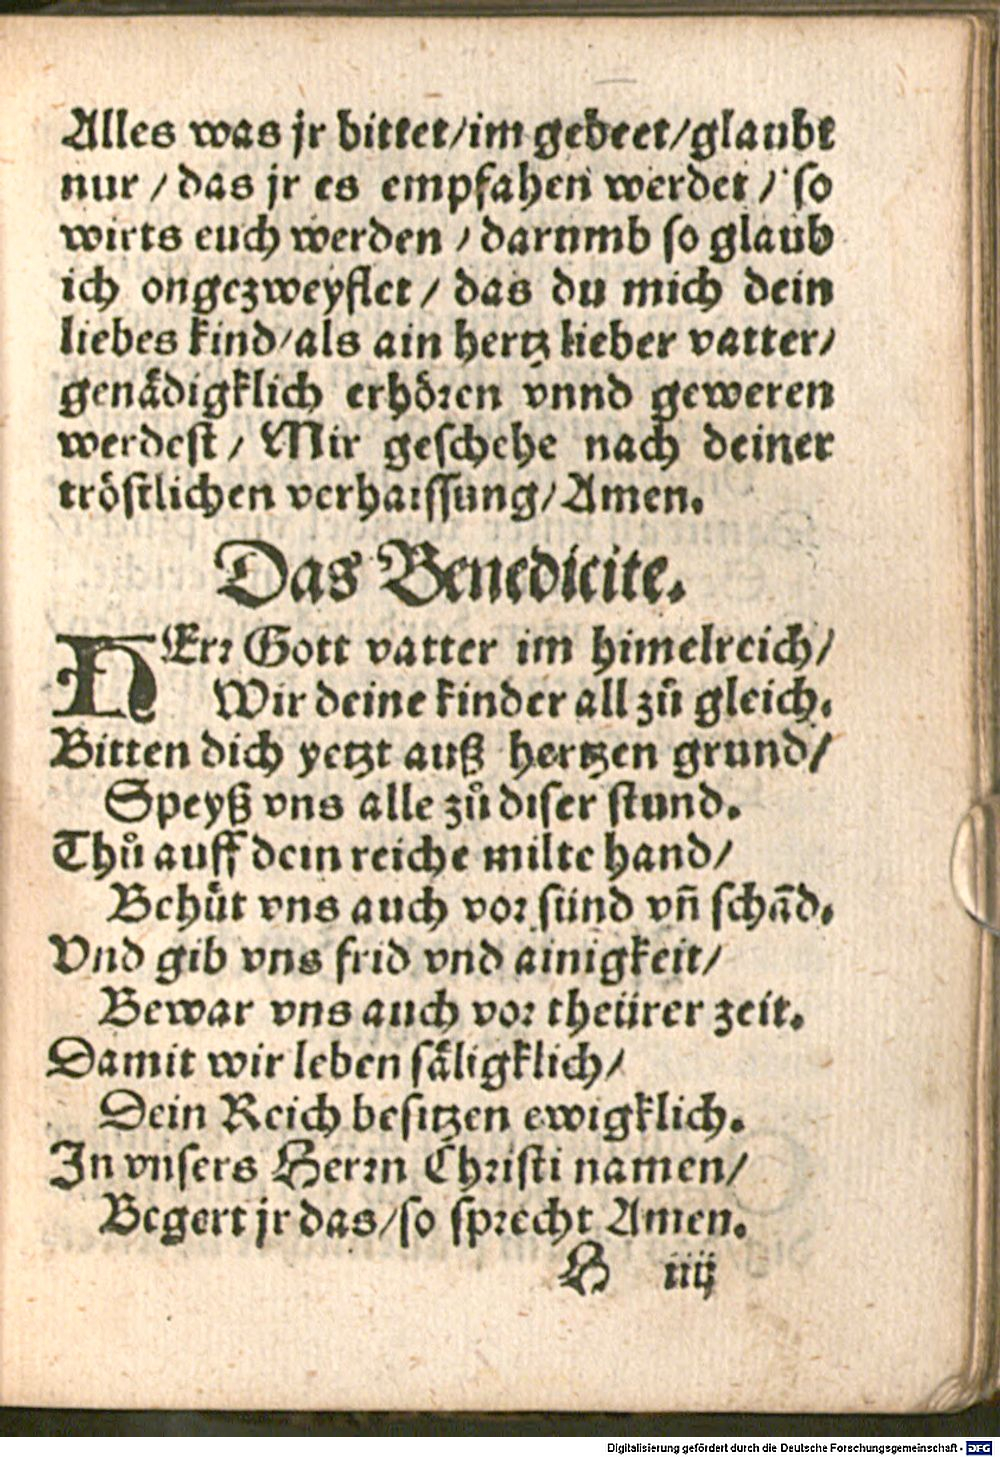 Alles was jr bittet/im gebeet/glaubt
nur / das jr es empfahen werdet / so
wirts euch werden / darumb so glaub
ich ongezweyflet / das du mich dein
liebes kind/als ain hertz lieber vatter/
genaͤdigklich erhoͤren vnnd geweren
werdest / Mir geschehe nach deiner
troͤstlichen verhaissung/Amen.
Das Benedicite.
HErr Gott vatter im himelreich/
Wir deine kinder all zuͦ gleich.
Bitten dich yetzt auß hertzen grund/
Speyß vns alle zuͦ diser stund.
Thuͦ auff dein reiche milte hand/
Behuͤt vns auch vor sünd vñ schãd.
Vnd gib vns frid vnd ainigkeit/
Bewar vns auch vor theürer zeit.
Damit wir leben saͤligklich/
Dein Reich besitzen ewigklich.
In vnsers Herrn Christi namen/
Begert jr das/so sprecht Amen.
H iiij
Digitalisierung gefördert durch die Deutsche Forschungsgemeinschaft - DFG